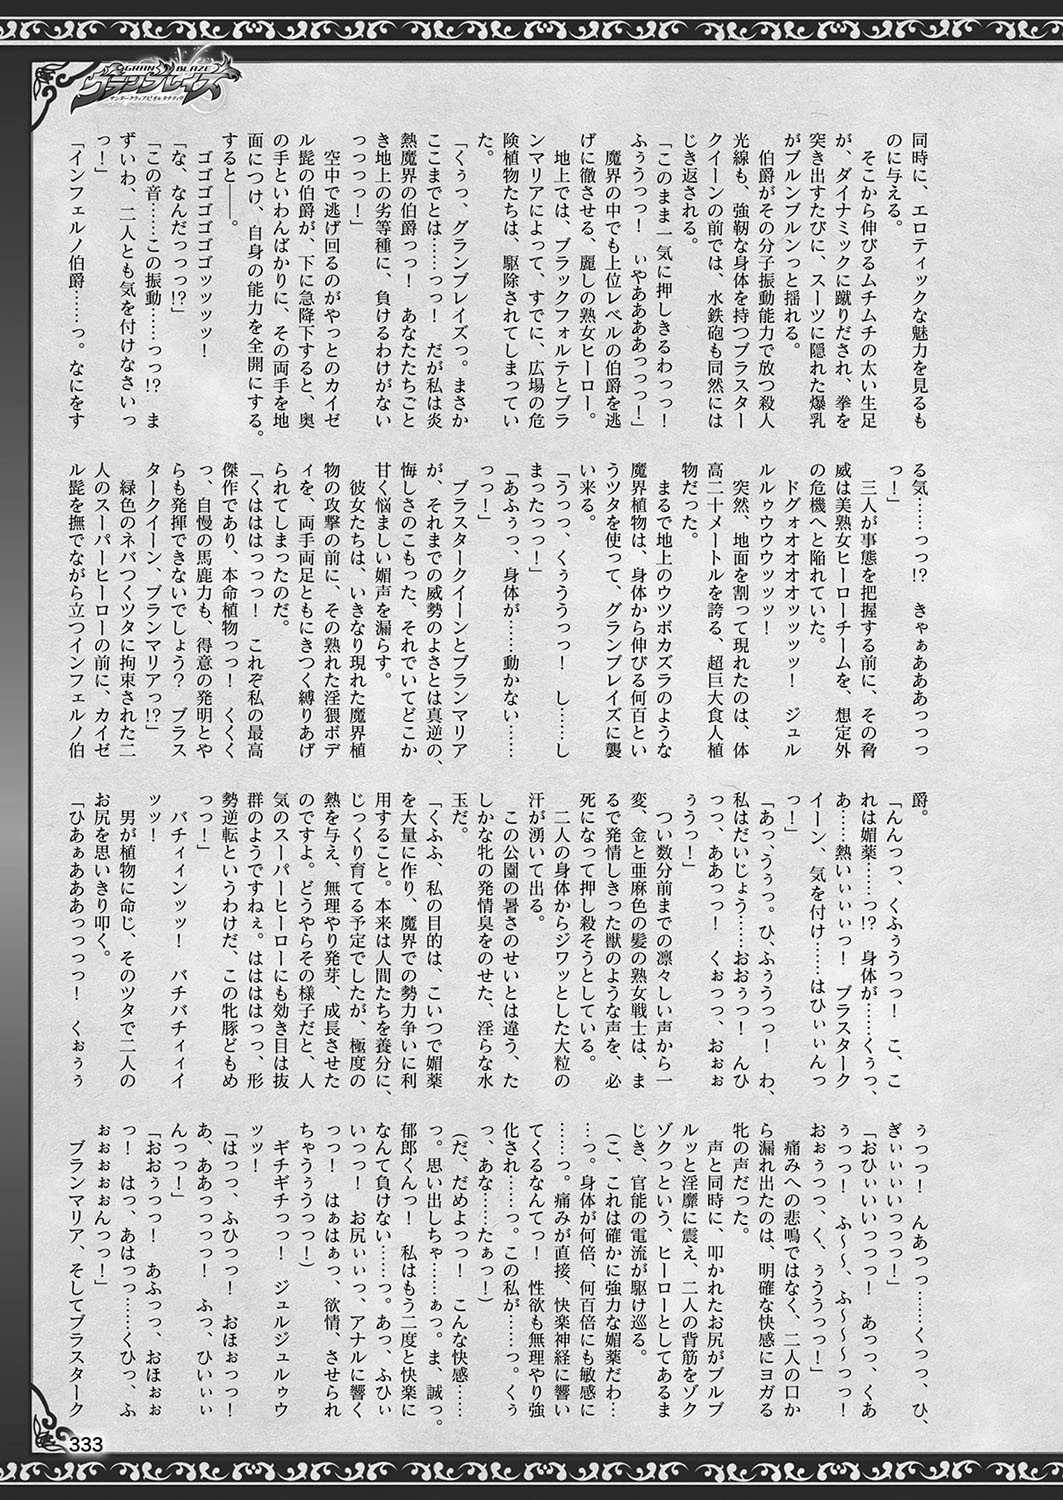 GRAN BLAZE
グランブレイズ
サンダークラップス！オルタナティヴ
同時に、エロティックな魅力を見るも
のに与える。
　そこから伸びるムチムチの太い生足
が、ダイナミックに蹴りだされ、拳を
突き出すたびに、スーツに隠れた爆乳
がブルンブルンっと揺れる。
　伯爵がその分子振動能力で放つ殺人
光線も、強靭な身体を持つブラスター
クイーンの前では、水鉄砲も同然には
じき返される。
「このまま一気に押しきるわっっ！
ふぅうっっ！　いやああああっっっ！」
　魔界の中でも上位レベルの伯爵を逃
げに徹させる、麗しの熟女ヒーロー。
　地上では、ブラックフォルテとブラ
ンマリアによって、すでに、広場の危
険植物たちは、駆除されてしまってい
た。
「くぅっ、グランブレイズっ。まさか
ここまでとは……っっ！　だが私は炎
熱魔界の伯爵っっ！　あなたたちごと
き地上の劣等種に、負けるわけがない
っっっっ！」
　空中で逃げ回るのがやっとのカイゼ
ル髭の伯爵が、下に急降下すると、奥
の手といわんばかりに、その両手を地
面につけ、自身の能力を全開にする。
すると――。
　ゴゴゴゴゴゴゴッッッッ！
「な、なんだっっっ!?」
「この音……この振動……っっ!?　ま
ずいわ、二人とも気を付けなさいっ
っ！」
「インフェルノ伯爵……っ。なにをす
る気……っっ!?　きゃぁあああっっっ
っ！」
　三人が事態を把握する前に、その脅
威は美熟女ヒーローチームを、想定外
の危機へと陥れていた。
　ドグォオオオオオッッッッ！　ジュル
ルルゥウウウウッッッッ！
　突然、地面を割って現れたのは、体
高二十メートルを誇る、超巨大食人植
物だった。
　まるで地上のウツボカズラのような
魔界植物は、身体から伸びる何百とい
うツタを使って、グランブレイズに襲
い来る。
「うっっ、くぅううっっ！　し……し
まったっっ！」
「あふぅっ、身体が……動かない……
っっ！」
　ブラスタークイーンとブランマリア
が、それまでの威勢のよさとは真逆の、
悔しさのこもった、それでいてどこか
甘く悩ましい媚声を漏らす。
　彼女たちは、いきなり現れた魔界植
物の攻撃の前に、その熟れた淫猥ボデ
ィを、両手両足ともにきつく縛りあげ
られてしまったのだ。
「くはははっっっ！　これぞ私の最高
傑作であり、本命植物っっ！　くくく
っ、自慢の馬鹿力も、得意の発明とや
らも発揮できないでしょう？　ブラス
タークイーン、ブランマリアっ!?」
　緑色のネバつくツタに拘束された二
人のスーパーヒーローの前に、カイゼ
ル髭を撫でながら立つインフェルノ伯
爵。
「んんっっ、くふぅうっっ！　こ、こ
れは媚薬……っっ!?　身体が……くぅっ、
あ……熱いぃいぃっ！　ブラスターク
イーン、気を付け……はひぃぃんっ
っ！」
「あっ、うぅっ。ひ、ふぅうっっ！　わ、
私はだいじょう……おおぅっ！　んひ
っっ、ああっっ！　くぉっっ、おぉぉ
ぅうっ！」
　つい数分前までの凛々しい声から一
変、金と亜麻色の髪の熟女戦士は、ま
るで発情しきった獣のような声を、必
死になって押し殺そうとしている。
　二人の身体からジワッとした大粒の
汗が湧いて出る。
　この公園の暑さのせいとは違う、た
しかな牝の発情臭をのせた、淫らな水
玉だ。
「くふふ、私の目的は、こいつで媚薬
を大量に作り、魔界での勢力争いに利
用すること。本来は人間たちを養分に、
じっくり育てる予定でしたが、極度の
熱を与え、無理やり発芽、成長させた
のですよ。どうやらその様子だと、人
気のスーパーヒーローにも効き目は抜
群のようですねぇ。はははははっ、形
勢逆転というわけだ、この牝豚どもめ
っっ！」
　バチィィンッッ！　バチバチィィイ
ッッ！
　男が植物に命じ、そのツタで二人の
お尻を思いきり叩く。
「ひあぁあああっっっっ！　くぉぅぅ
ぅっっ！　んあっっ……くっっ、ひ、
ぎぃいいいっっっ！」
「おひぃいいっっっ！　あっっ、くあ
ぅっっ！　ふ～～、ふ～～～っっ！
おぉぅっっ、く、ぅううっっ！」
　痛みへの悲鳴ではなく、二人の口か
ら漏れ出たのは、明確な快感にヨガる
牝の声だった。
　声と同時に、叩かれたお尻がブルブ
ルッと淫靡に震え、二人の背筋をゾク
ゾクっという、ヒーローとしてあるま
じき、官能の電流が駆け巡る。
（こ、これは確かに強力な媚薬だわ…
…っ。身体が何倍、何百倍にも敏感に
……っ。痛みが直接、快楽神経に響い
てくるなんてっ！　性欲も無理やり強
化され……っ。この私が……っ。くぅ
っ、あな……たぁっ！）
（だ、だめよっっ！　こんな快感……
っ。思い出しちゃ……ぁっ。ま、誠っ。
郁郎くんっ！　私はもう二度と快楽に
なんて負けない……っ。あっ、ふひぃ
いっっ！　お尻ぃぃっ、アナルに響く
っっ！　はぁはぁっ、欲情、させられ
ちゃうぅうっっ！）
　ギチギチっっ！　ジュルジュルゥウ
ッッ！
「はっっ、ふひっっ！　おほぉっっ！
あ、ああっっっっ！　ふっ、ひいぃぃ
んっっ！」
「おおぅっっ！　あふっっ、おほぉぉ
っ！　はっ、あはっっ……くひっ、ふ
ぉぉおぉぉんっっ！」
　ブランマリア、そしてブラスターク
333